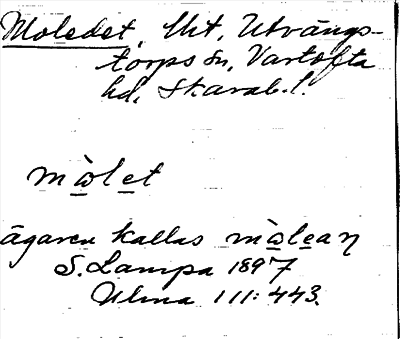 Moledet, Uht, Utvängs-
torps sn, Vartofta
hd, Skarab. l.
mὼlet
ägaren kallas mὼleaŋ
S. Lampa 1897
Ulma 111:443.